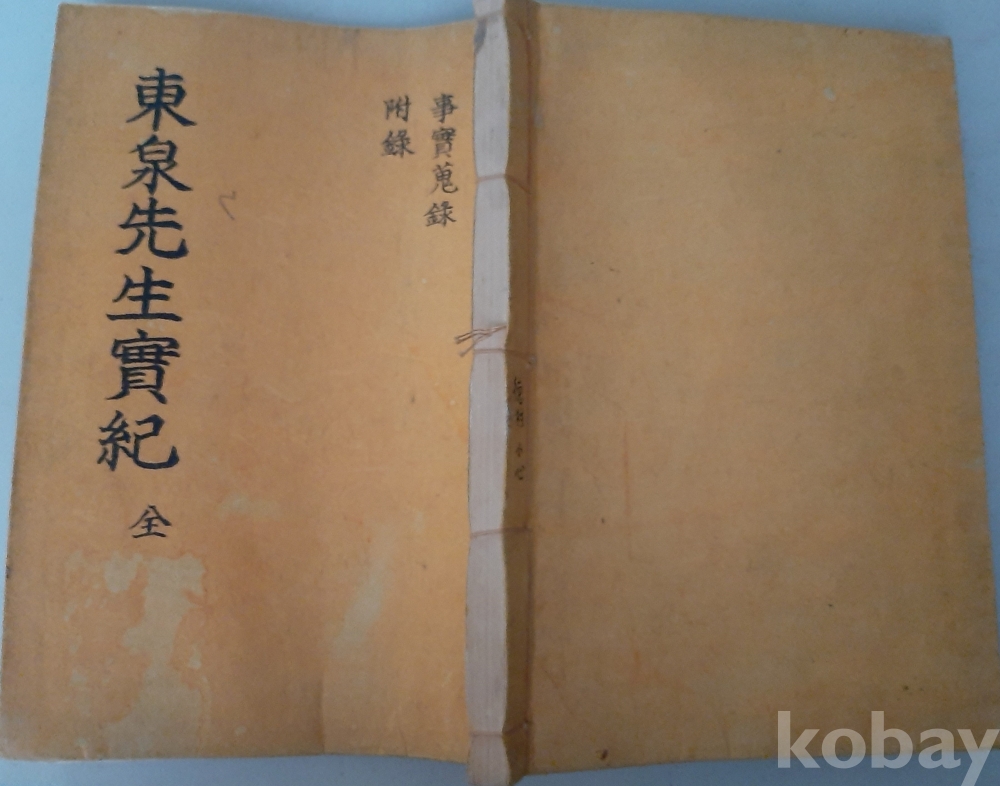 東泉先生實紀 全
事實蒐錄
附錄
kobay